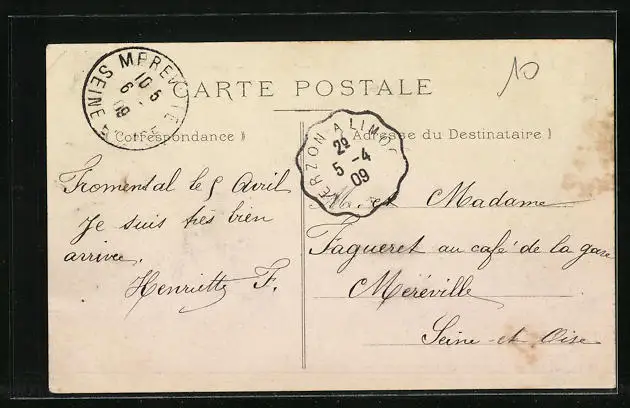 CARTE POSTALE
Correspondance
Adresse du Destinataire
10
VIERZON A LIMO
2º
5 -4
09
SEINE
10 5
6 -4
09
Fromental le 5 Avril
Je suis très bien
arrivée.
Henriette F.
Madame
Fagueret au café de la gare
Méréville
Seine-et-Oise